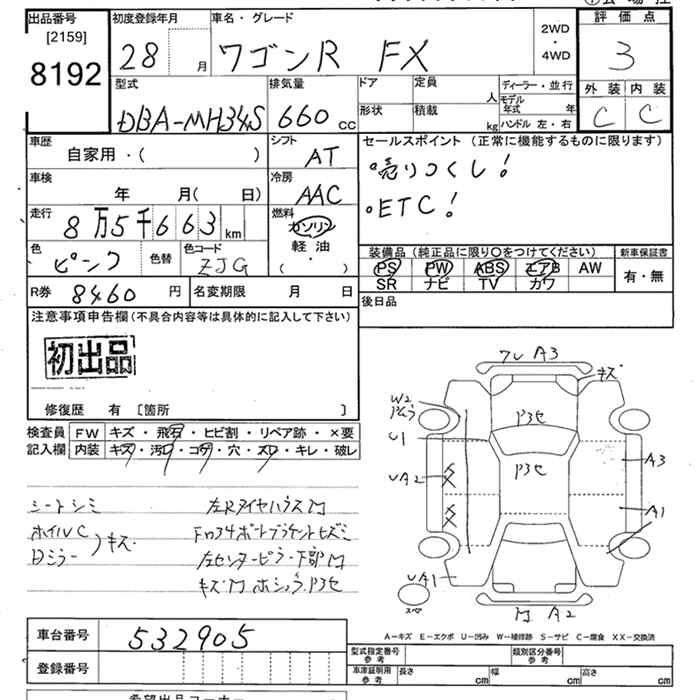 出品番号
[2159]
8192
初度登録年月
28 月
車名・グレード
ワゴンR FX
2WD
・
4WD
評価点
3
型式
DBA-MH34S
排気量
660 cc
ドア
定員
人
形状
積載
kg
ディーラー・並行
モデル年式 年
ハンドル 左・右
外装 内装
C C
車歴
自家用・( )
シフト
AT
セールスポイント (正常に機能するものに限ります)
・売りつくし!
・ETC!
車検
年 月( 日)
冷房
AAC
走行
8万5千663 km
燃料
ガソリン
軽油
( ・ )
色
ピンク
色替
色コード
ZJG
装備品 (純正品に限り○をつけてください)
PS PW ABS エアB AW
SR ナビ TV カワ
新車保証書
有・無
R券 8460 円
名変期限 月 日
後日品
注意事項申告欄 (不具合内容等は具体的に記入して下さい)
初出品
修復歴 有 [箇所 ]
検査員 FW キズ・飛石・ヒビ割・リペア跡・×要
記入欄 内装 キズ・汚レ・コゲ・穴・スレ・キレ・破レ
シートシミ
ホイルC
Dミラー
キズ
左Rタイヤハウス
キズ
ワレ A3
キズ
W2
U1
UA2
UA1
A3
A1
A2
スペア
A-キズ E-エクボ U-凹み W-補修跡 S-サビ C-腐食 XX-交換済
車台番号 532905
登録番号
型式指定番号 参考
類別区分番号 参考
車庫証明用 参考
長さ cm
幅 cm
高さ cm
希望出品コーナー